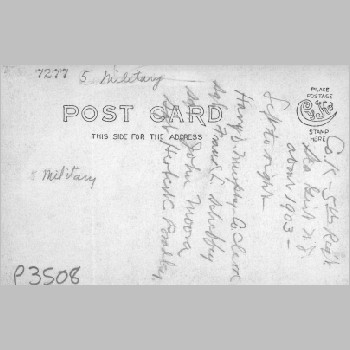 7277 5 Military
POST CARD
THIS SIDE FOR THE ADDRESS
PLACE
POSTAGE
STAMP
HERE
Military
P3508
Co. K - 5th Regt
Sea Girt N.J.
about 1903 -
Left to right
Harry Murphy Co Clerk
Sgt. Frank
Sgt John Moore
Sgt Herbert